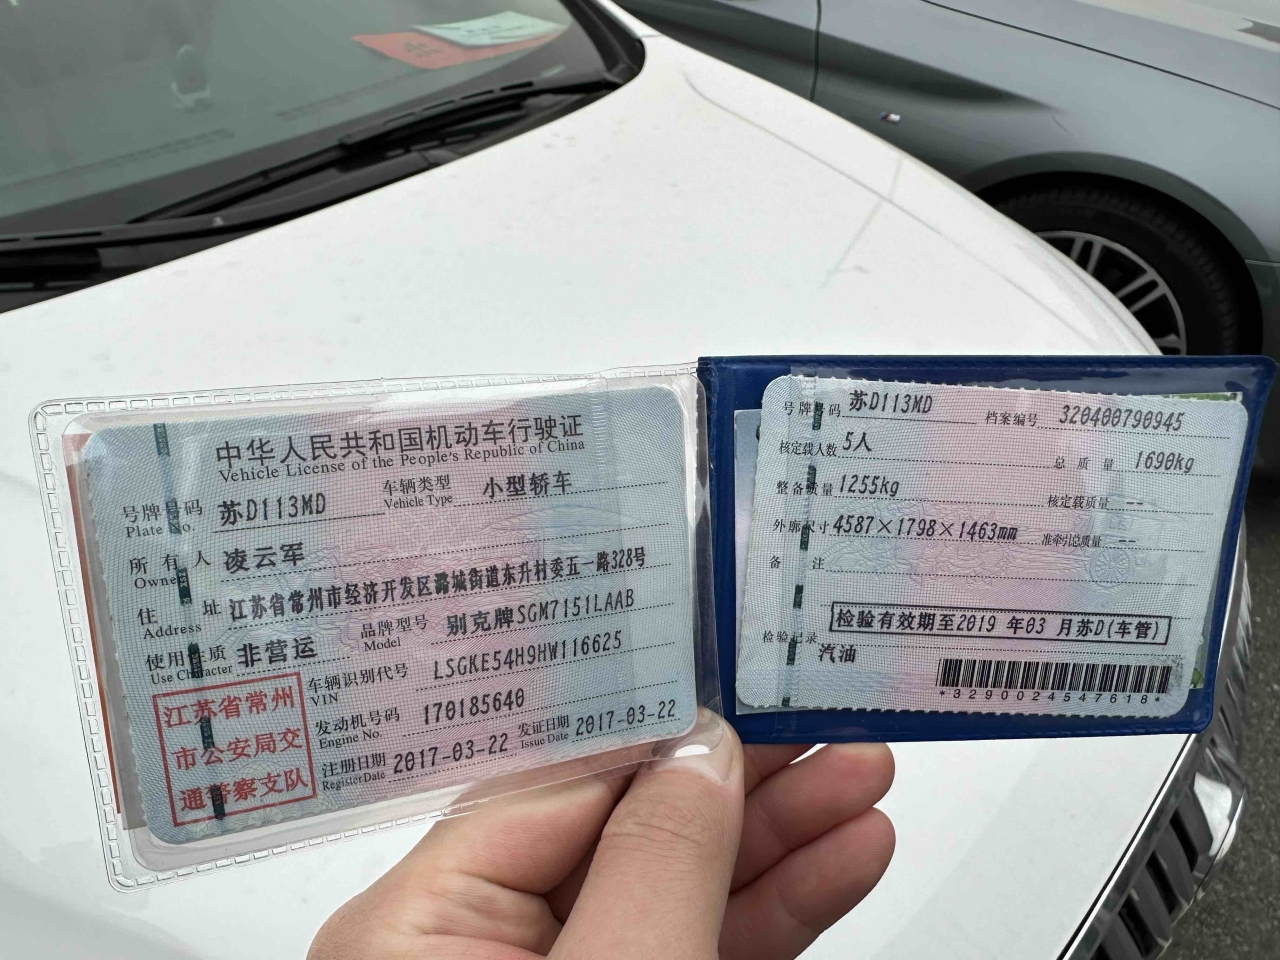 中华人民共和国机动车行驶证
Vehicle License of the People's Republic of China
号牌号码 苏D113MD 车辆类型 小型轿车
Plate No. Vehicle Type
所有人 凌云军
Owner
住址 江苏省常州市经济开发区潞城街道东升村委五一路328号
Address
使用性质 非营运 品牌型号 别克牌SGM7151LAAB
Use Character Model
车辆识别代号 LSGKE54H9HW116625
VIN
发动机号码 170185640
Engine No.
注册日期 2017-03-22 发证日期 2017-03-22
Register Date Issue Date
江苏省常州
市公安局交
通警察支队
号牌号码 苏D113MD 档案编号 320400790945
核定载人数 5人 总质量 1690kg
整备质量 1255kg 核定载质量 --
外廓尺寸 4587×1798×1463mm 准牵引总质量 --
备注
检验记录 检验有效期至2019年03月苏D(车管)
汽油
*3290024547618*